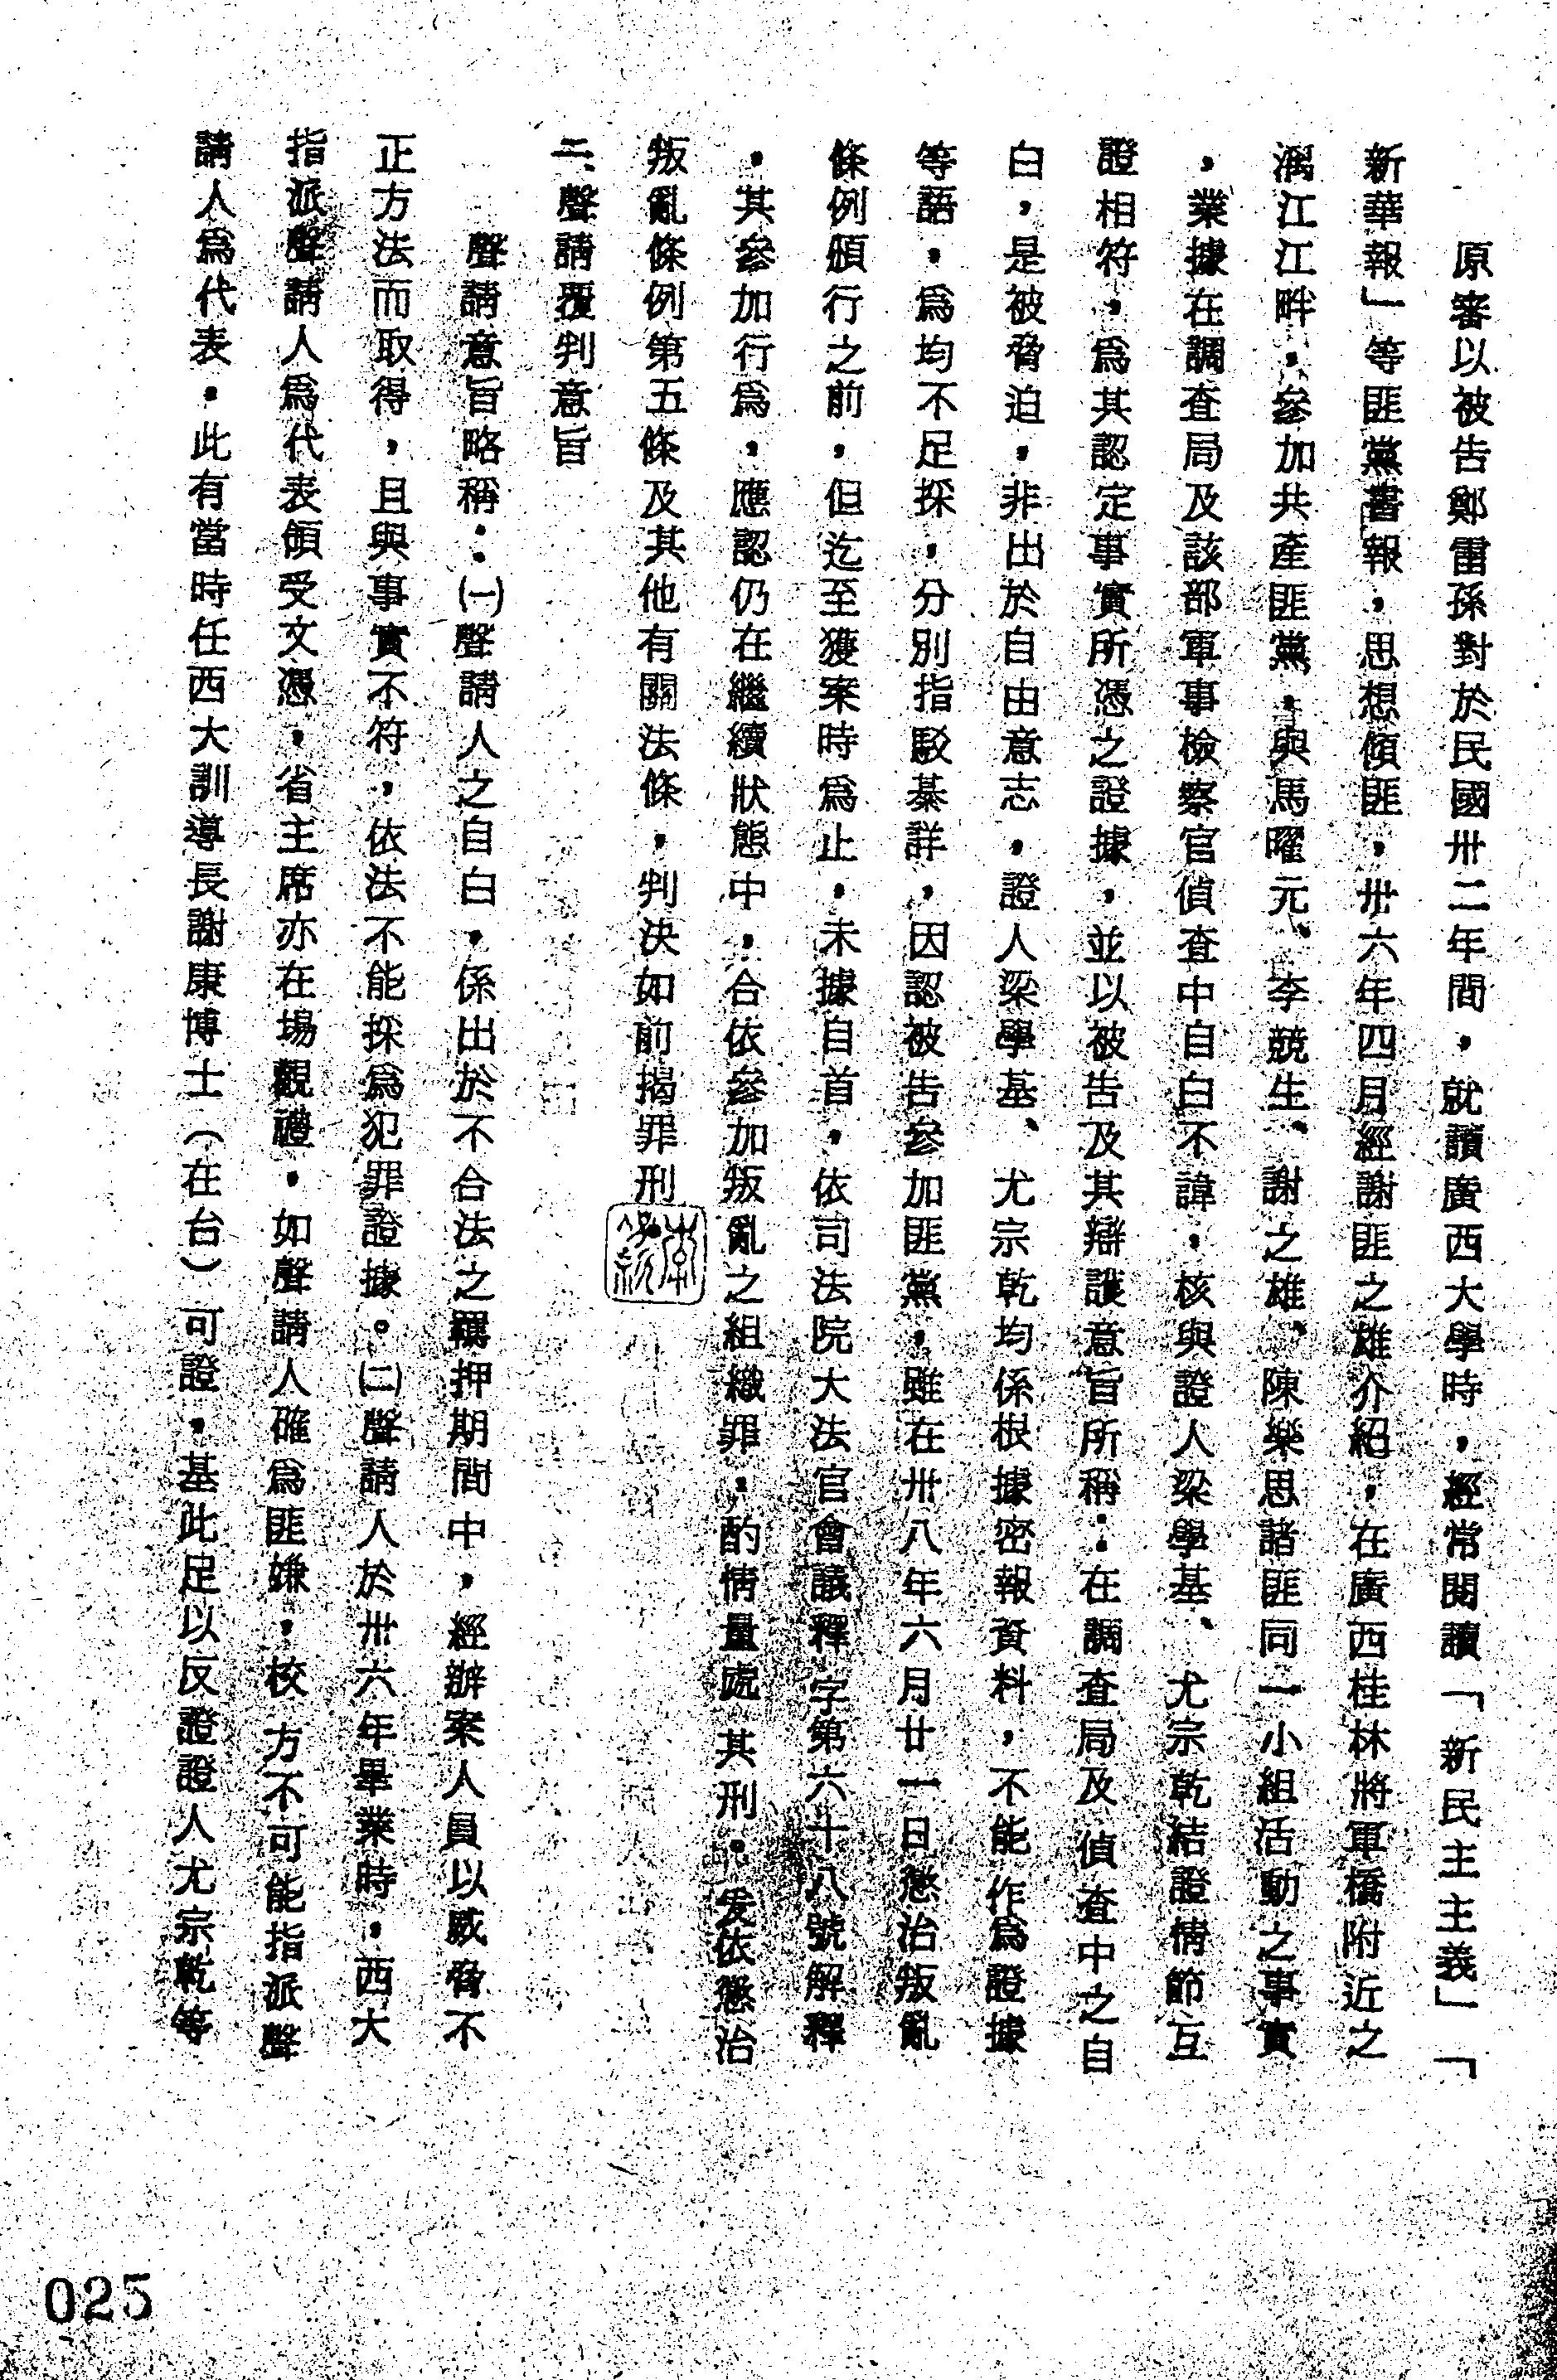 原審以被告鄭雷孫對於民國卅二年間，就讀廣西大學時，經常閱讀「新民主主義」「
新華報」等匪黨書報，思想傾匪，卅六年四月經謝匪之雄介紹，在廣西桂林將軍橋附近之
漓江江畔，參加共產匪黨，與馬曜元、李競生、謝之雄、陳樂思諸匪同一小組活動之事實
，業據在調查局及該部軍事檢察官偵查中自白不諱，核與證人梁學基、尤宗乾結證情節互
證相符，為其認定事實所憑之證據，並以被告及其辯護意旨所稱：在調查局及偵查中之自
白，是被脅迫，非出於自由意志，證人梁學基、尤宗乾均係根據密報資料，不能作為證據
等語，為均不足採，分別指駁綦詳，因認被告參加匪黨，雖在卅八年六月廿一日懲治叛亂
條例頒行之前，但迄至獲案時為止，未據自首，依司法院大法官會議釋字第六十八號解釋
，其參加行為，應認仍在繼續狀態中，合依參加叛亂之組織罪，酌情量處其刑。爰依懲治
叛亂條例第五條及其他有關法條，判決如前揭罪刑。
二、聲請覆判意旨
聲請意旨略稱：㈠聲請人之自白，係出於不合法之羈押期間中，經辦案人員以威脅不
正方法而取得，且與事實不符，依法不能採為犯罪證據。㈡聲請人於卅六年畢業時，西大
指派聲請人為代表領受文憑，省主席亦在場觀禮，如聲請人確為匪嫌，校方不可能指派聲
請人為代表，此有當時任西大訓導長謝康博士（在台）可證，基此足以反證證人尤宗乾等
025